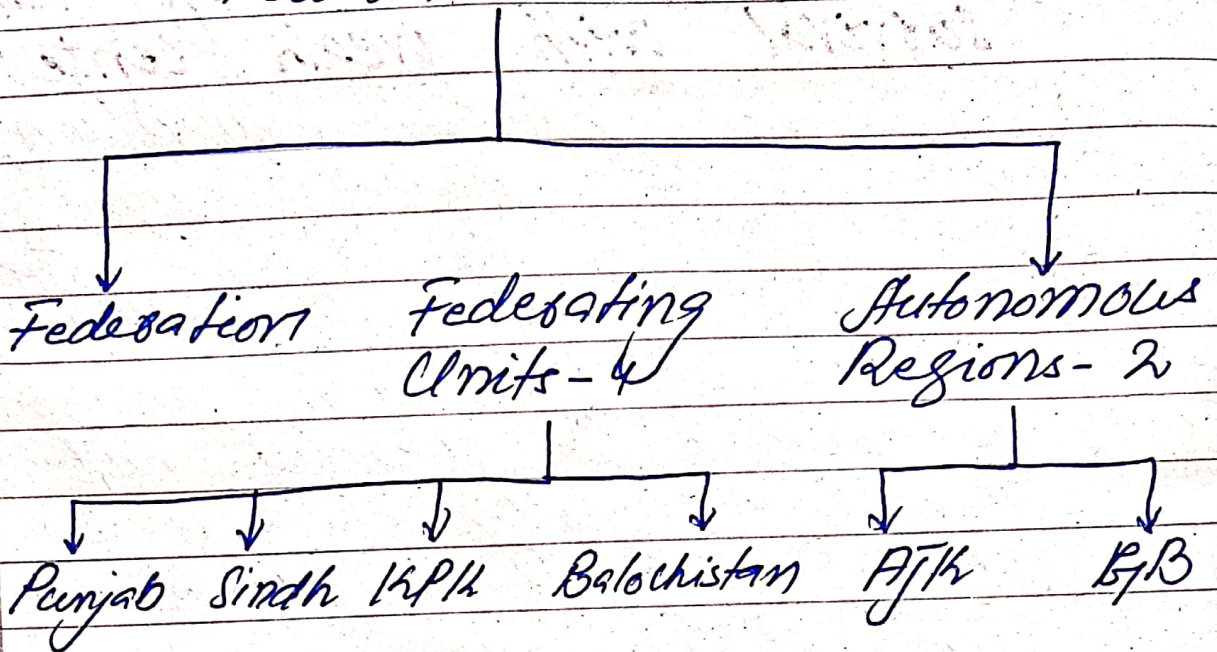 Federation Federating Autonomous
Units - 4 Regions - 2
Punjab Sindh KPK Balochistan AJK GB